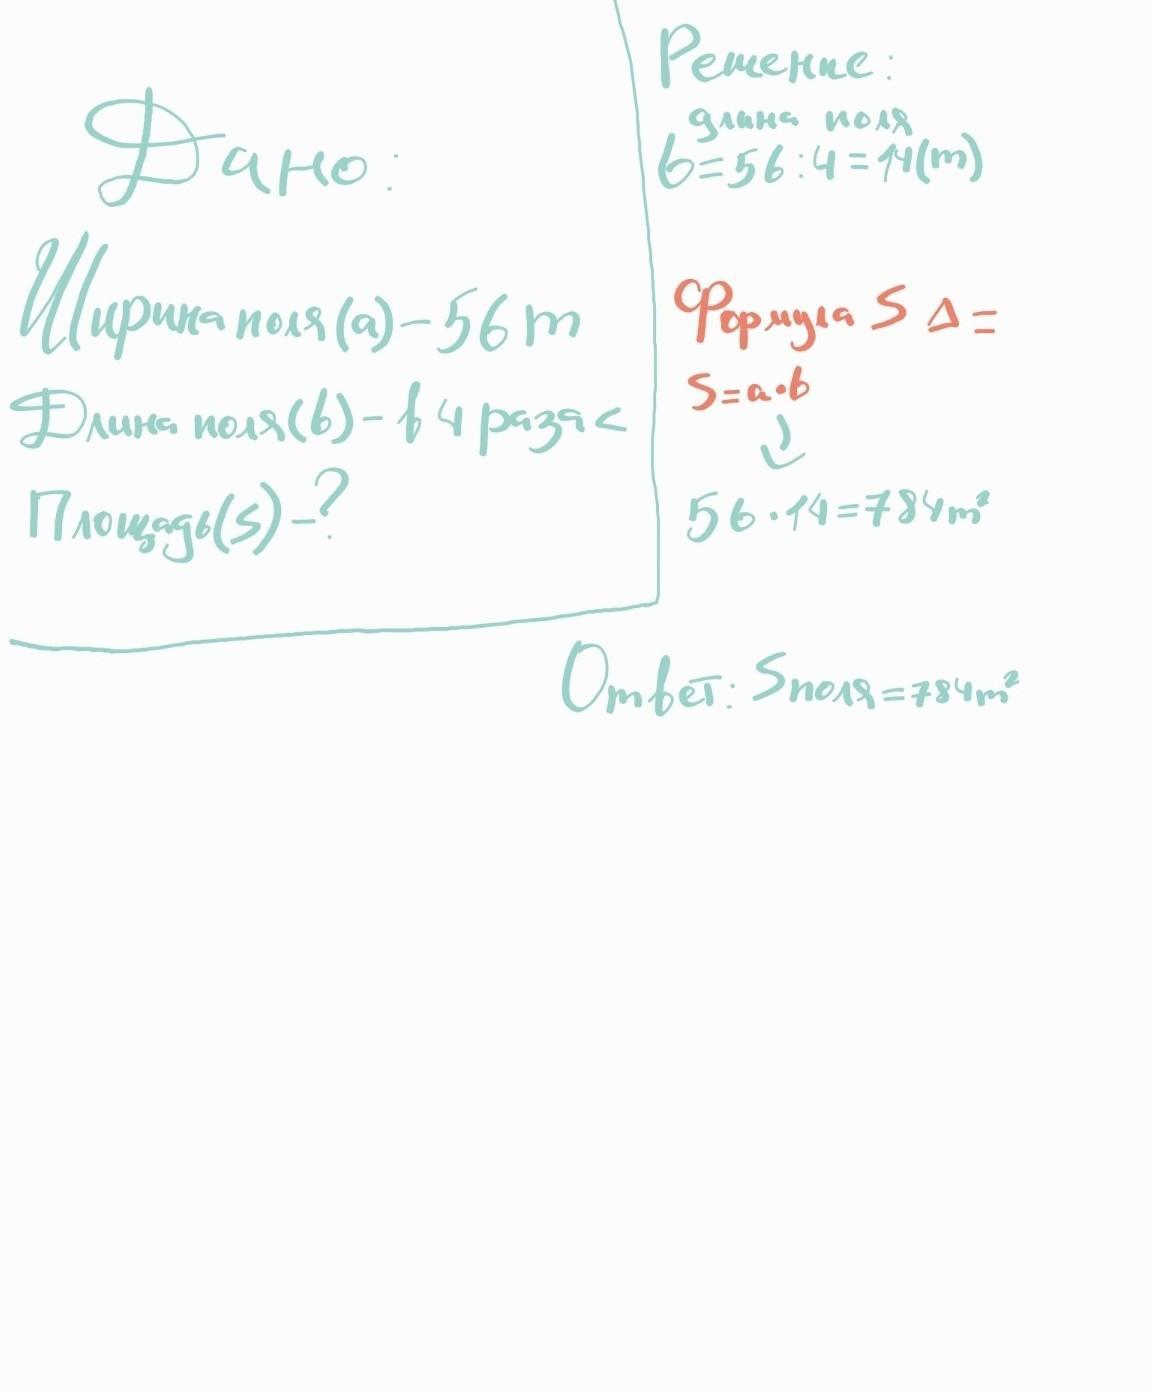 Дано:
Ширина поля(a) - 56 m
Длина поля(b) - в 4 раза <
Площадь(S) - ?
Решение:
длина поля
b = 56 : 4 = 14(m)
Формула S Δ =
S = a · b
56 · 14 = 784 m²
Ответ: S поля = 784 m²